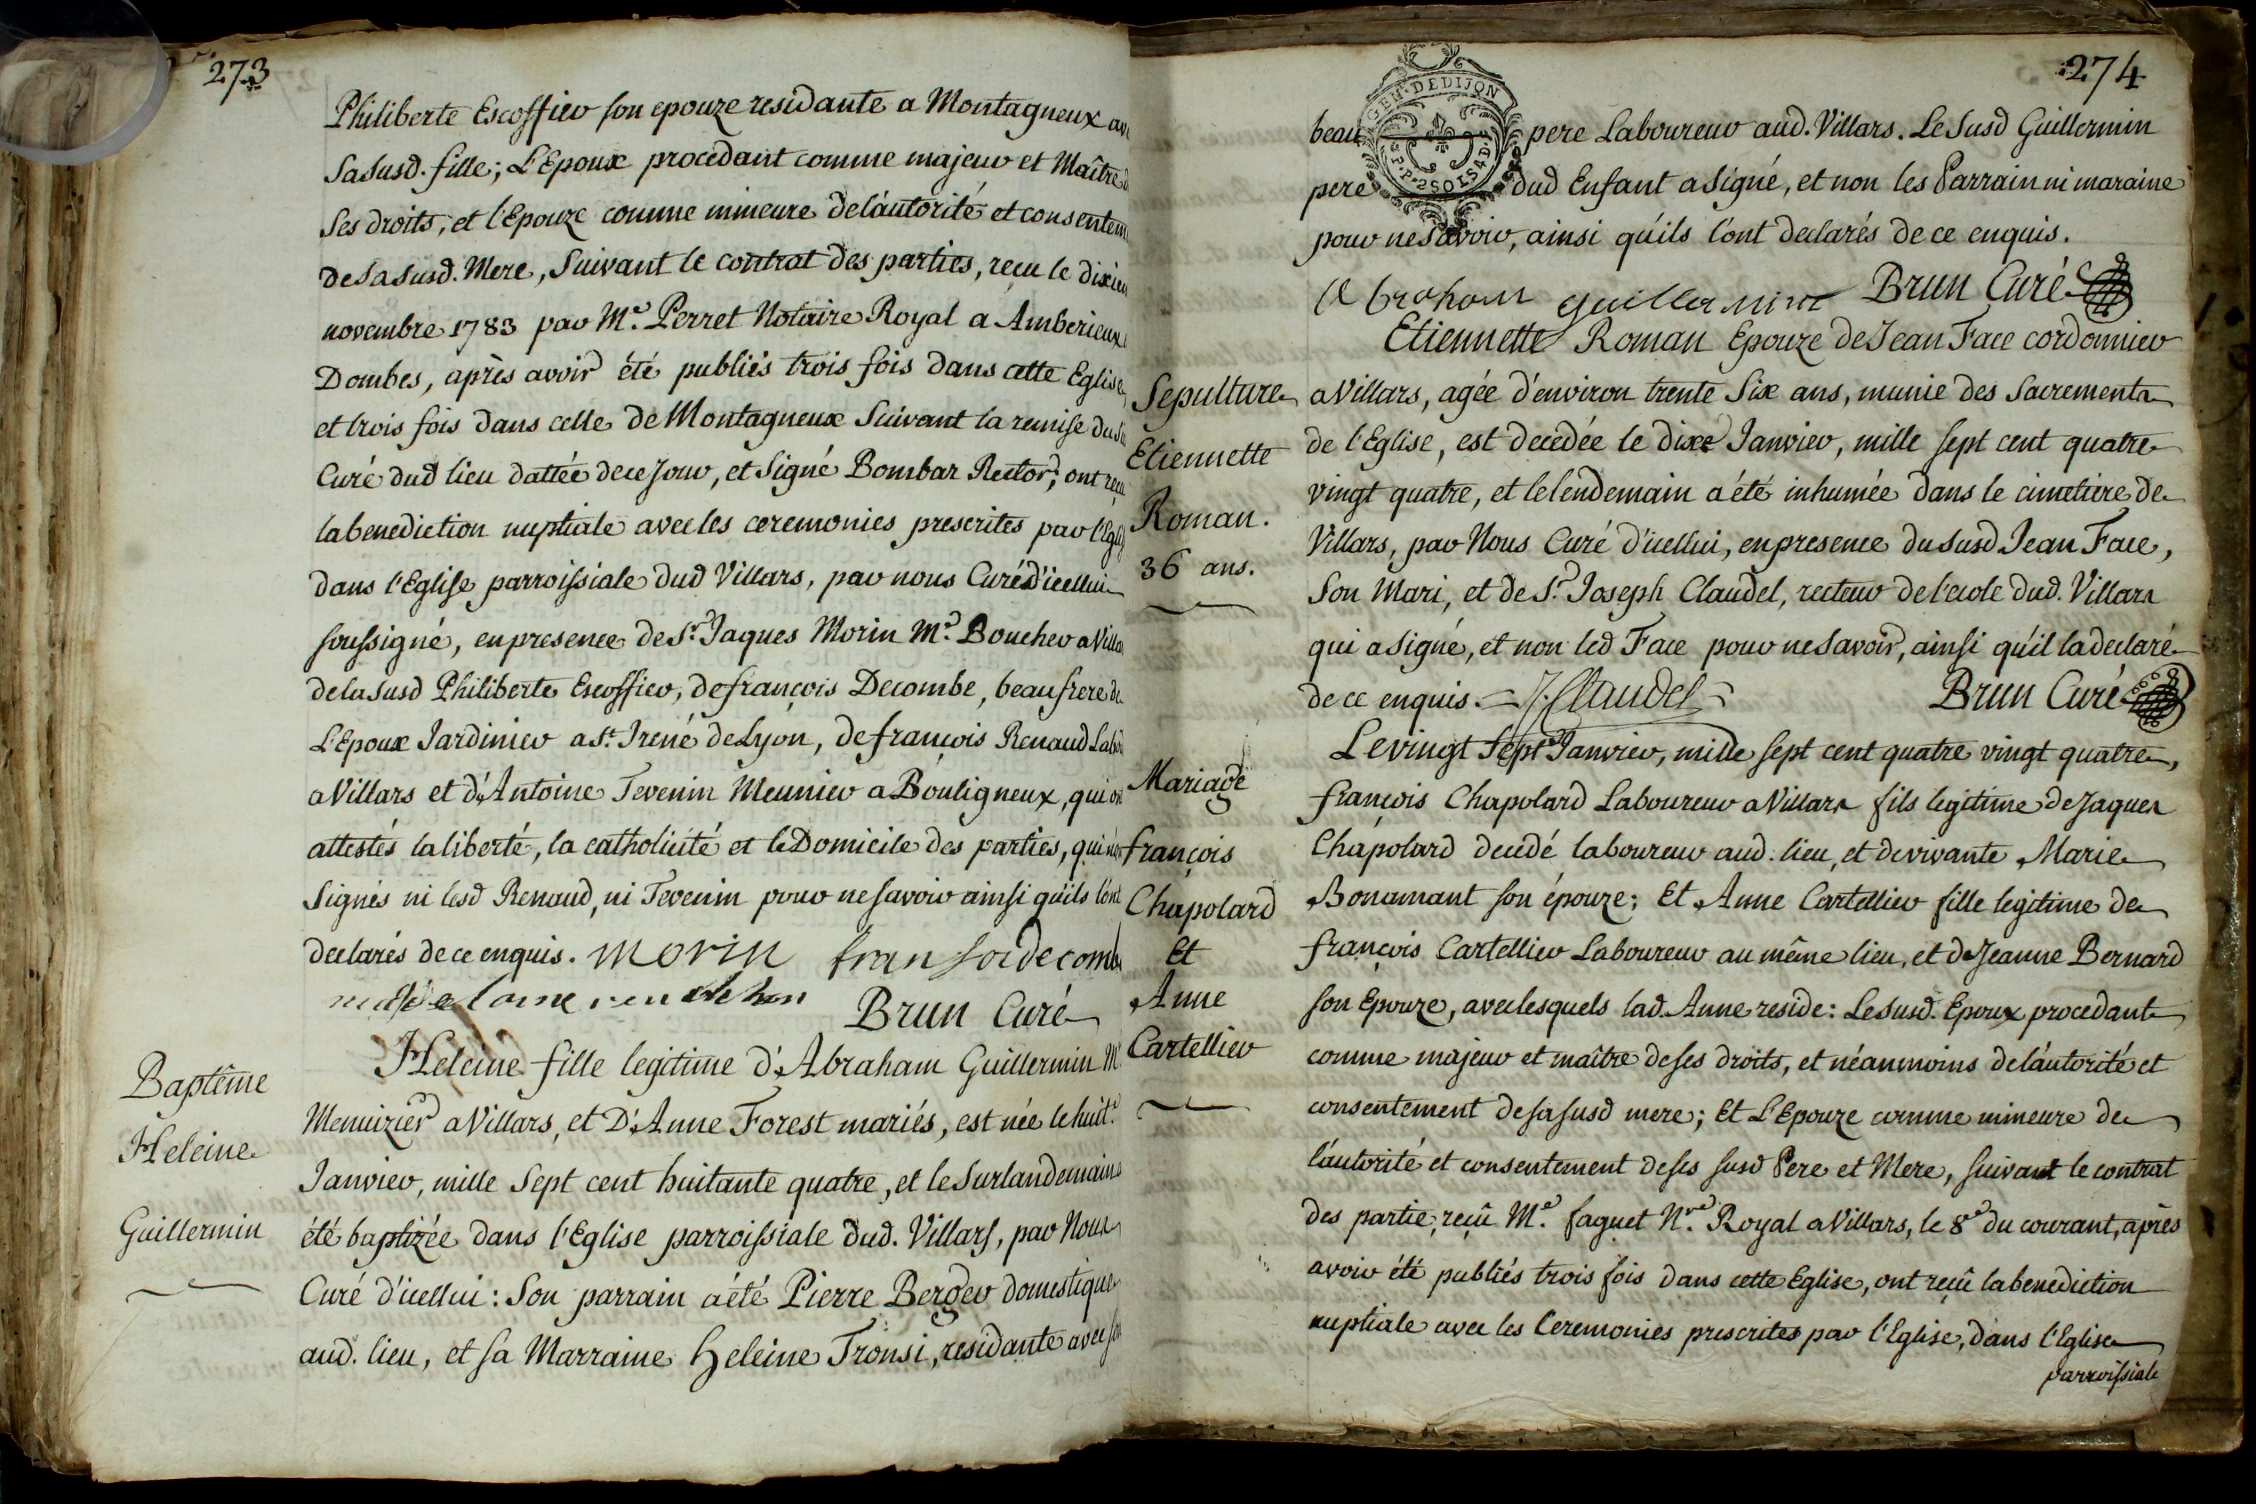 273
Philiberte Escoffier son epouze residante a Montagneux
Sa susd. fille; L'Epoux procedant comme majeur et Maître
Ses droits, et l'Epouze comme mineure de l'áutorité et consentem
de sa susd. Mere, Suivant le contrat des parties, reçu le dixiem
novembre 1783 par Me. Perret Notaire Royal a Amberieux
Dombes, après avoir été publiés trois fois dans cette Eglise
et trois fois dans celle de Montagneux Suivant la remise du
Curé dud lieu dattée de ce Jour, et Signé Bombar Rector; ont reçu
la benediction nuptiale avec les ceremonies prescrites par l'Egli
dans l'Eglise parroissiale dud Villars, par nous Curé d'icellui
soussigné, en presence de Sr. Jaques Morin Md. Boucher a Villa
de la susd Philiberte Escoffier, de françois Decombe, beaufrere de
L'Epoux Jardinier a St. Irené de Lyon, de françois Renaud Lab
a Villars et d'Antoine Tevenin Meunier a Bouligneux, qui on
attestés la liberté, la catholicité et le Domicile des parties, qui
Signés ni lesd Renaud, ni Tevenin pour ne savoir ainsi qu'ils l'ont
declarés de ce enquis. Morin fransoi decomb
Brun Curé
Baptême
Heleine
Guillermin
Heleine fille legitime d'Abraham Guillermin Md
Menuizier a Villars, et D'Anne Forest mariés, est née le huit.
Janvier, mille Sept cent huitante quatre, et le Surlandemain a
été baptizée dans l'Eglise parroissiale dud. Villars, par Nous
Curé d'icellui: Son parrain a été Pierre Berger domestique
aud. lieu, et sa Marraine Heleine Tronsi, residante avec son
274
GEN. DE DIJON
P.P. 2 SOLS 4 D.
beau pere Laboureur aud. Villars. Le Susd Guillermin
pere dud Enfant a Signé, et non les Parrain ni maraine
pour ne Savoir, ainsi qu'ils l'ont declarés de ce enquis.
Abraham guillermint Brun Curé
Sepulture
Etiennette
Roman.
36 ans.
Etiennette Roman Epouze de Jean Face cordonnier
a Villars, agée d'environ trente Six ans, munie des Sacrements
de l'Eglise, est decédée le dixe Janvier, mille sept cent quatre
vingt quatre, et le lendemain a été inhumée dans le cimetiere de
Villars, par Nous Curé d'icellui, en presence du susd Jean Face,
Son Mari, et de Sr. Joseph Claudel, recteur de l'ecole dud. Villars
qui a signé, et non led Face pour ne Savoir, ainsi qu'il l'a declaré
de ce enquis. J. Claudel Brun Curé
Mariage
françois
Chapolard
Et
Anne
Cartellier
Le vingt Sept Janvier, mille sept cent quatre vingt quatre,
françois Chapolard Laboureur a Villars fils legitime de Jaques
Chapolard decedé laboureur aud. lieu, et de vivante Marie
Bonamant son épouze; Et Anne Cartellier fille legitime de
françois Cartellier Laboureur au même lieu, et de Jeanne Bernard
son Epouze, avec lesquels lad. Anne reside: Le Susd. Epoux procedant
comme majeur et maître de ses droits, et néanmoins de l'áutorité et
consentement de sa susd mere; Et L'Epouze comme mineure de
l'áutorité et consentement de ses susd Pere et Mere, suivant le contrat
des partie, reçû Me. faguet Nre. Royal a Villars, le 8e du courant, après
avoir été publiés trois fois dans cette Eglise, ont reçû la benediction
nuptiale avec les Ceremonies prescrites par l'Eglise, dans l'Eglise
parroissiale